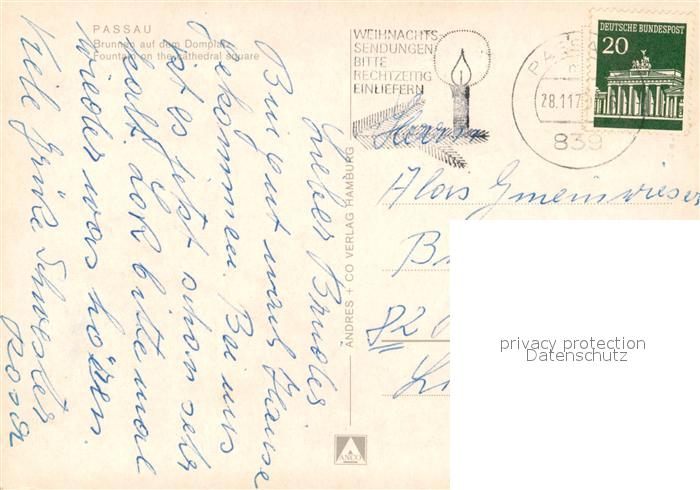 PASSAU
Brunnen auf dem Domplatz
Fountain on the cathedral square
Lieber Bruder
Bin gut nach Hause
gekommen. Bei uns
ist es jetzt schon sehr
kalt. Laß bitte mal
wieder was hören.
Viele Grüße Schwester
Rosa
ANDRES + CO VERLAG HAMBURG
ANCO
WEIHNACHTS-
SENDUNGEN
BITTE
RECHTZEITIG
EINLIEFERN
PASSAU
28.11.7
839
DEUTSCHE BUNDESPOST
20
Herrn
Alois Gmeinwieser
B
820
privacy protection
Datenschutz